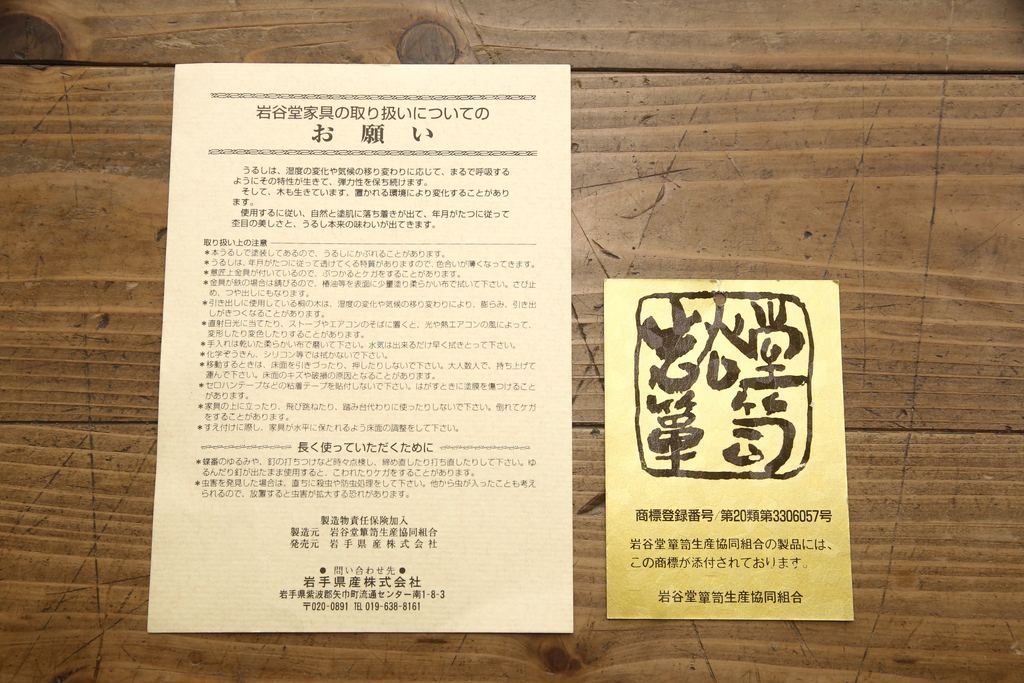 岩谷堂家具の取り扱いについての
お願い
うるしは、湿度の変化や気候の移り変わりに応じて、まるで呼吸する
ようにその特性が生きて、弾力性を保ち続けます。
そして、木も生きています。置かれる環境により変化することがあり
ます。
使用するに従い、自然と塗肌に落ち着きが出て、年月がたつに従って
杢目の美しさと、うるし本来の味わいが出てきます。
取り扱い上の注意
＊本うるしで塗装してあるので、うるしにかぶれることがあります。
＊うるしは、年月がたつに従って透けてくる特質がありますので、色合いが薄くなってきます。
＊意匠上金具が付いているので、ぶつかるとケガをすることがあります。
＊金具が鉄の場合は錆びるので、椿油等を表面に少量塗り柔らかい布で拭いて下さい。さび止
め、つや出しにもなります。
＊引き出しに使用している桐の木は、湿度の変化や気候の移り変わりにより、膨らみ、引き出
しがきつくなることがあります。
＊直射日光に当てたり、ストーブやエアコンのそばに置くと、光や熱エアコンの風によって、
変形したり変色したりすることがあります。
＊手入れは乾いた柔らかい布で磨いて下さい。水気は出来るだけ早く拭きとって下さい。
＊化学ぞうきん、シリコン等では拭かないで下さい。
＊移動するときは、床面を引きづったり、押したりしないで下さい。大人数人で、持ち上げて
運んで下さい。床面のキズや破損の原因となることがあります。
＊セロハンテープなどの粘着テープを貼付しないで下さい。はがすときに塗膜を傷つけること
があります。
＊家具の上に立ったり、飛び跳ねたり、踏み台代わりに使ったりしないで下さい。倒れてケガ
をすることがあります。
＊すえ付けに際し、家具が水平に保たれるよう床面の調整をして下さい。
長く使っていただくために
＊蝶番のゆるみや、釘の打ちつけなど時々点検し、締め直したり打ち直したりして下さい。ゆ
るんだり釘が出たまま使用すると、こわれたりケガをすることがあります。
＊虫害を発見した場合は、直ちに殺虫や防虫処理をして下さい。他から虫が入ったことも考え
られるので、放置すると虫害が拡大する恐れがあります。
製造物責任保険加入
製造元 岩谷堂箪笥生産協同組合
発売元 岩手県産株式会社
● 問い合わせ先 ●
岩手県産株式会社
岩手県紫波郡矢巾町流通センター南1-8-3
〒020-0891 TEL 019-638-8161
岩谷堂箪笥
商標登録番号/第20類第3306057号
岩谷堂箪笥生産協同組合の製品には、
この商標が添付されております。
岩谷堂箪笥生産協同組合